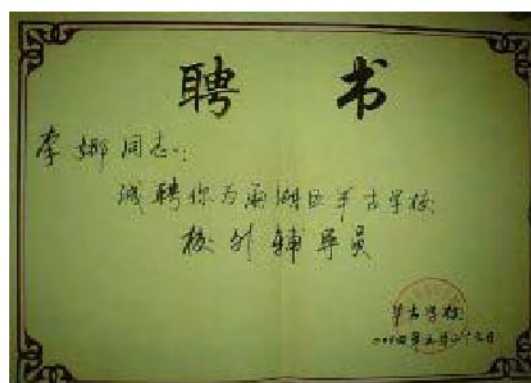 聘书
李娜同志:
诚聘你为雨湖区羊古学校
校外辅导员
羊古学校
二00四年五月二十六日